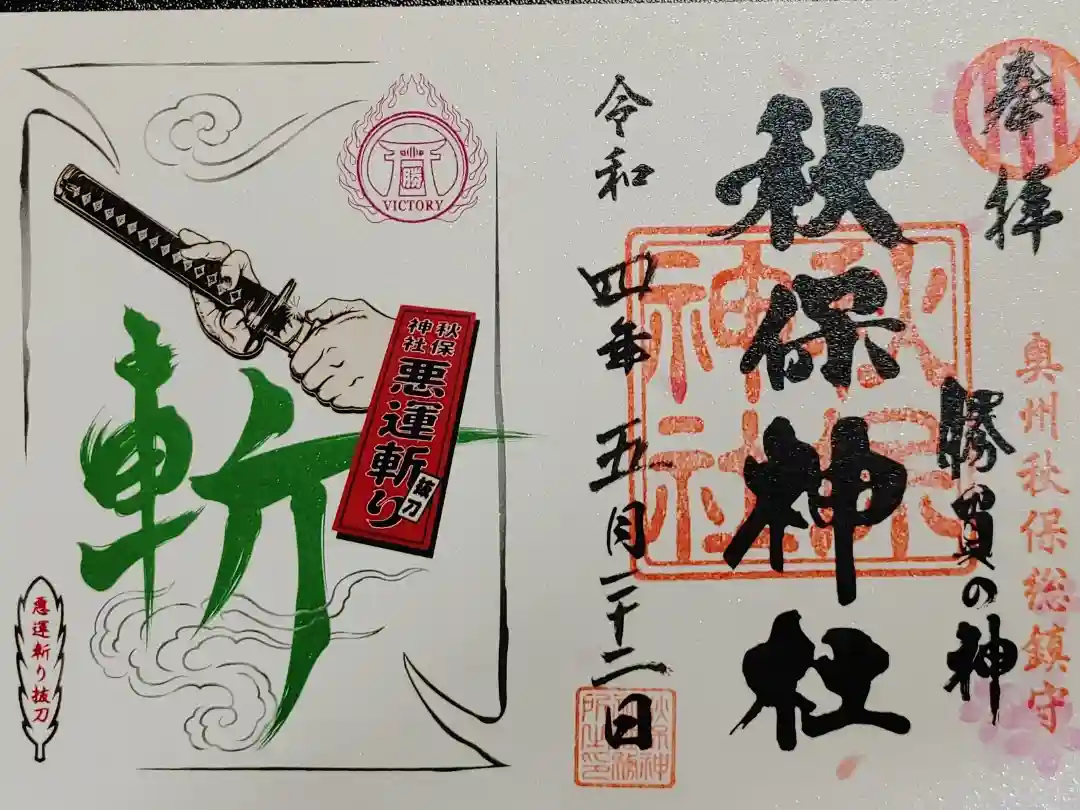 奉拝
奥州秋保総鎮守
勝負の神
秋保神社
秋保神社
令和四年五月二十二日
秋保神社
勝
VICTORY
秋保神社
悪運斬り
抜刀
斬
悪運斬り抜刀